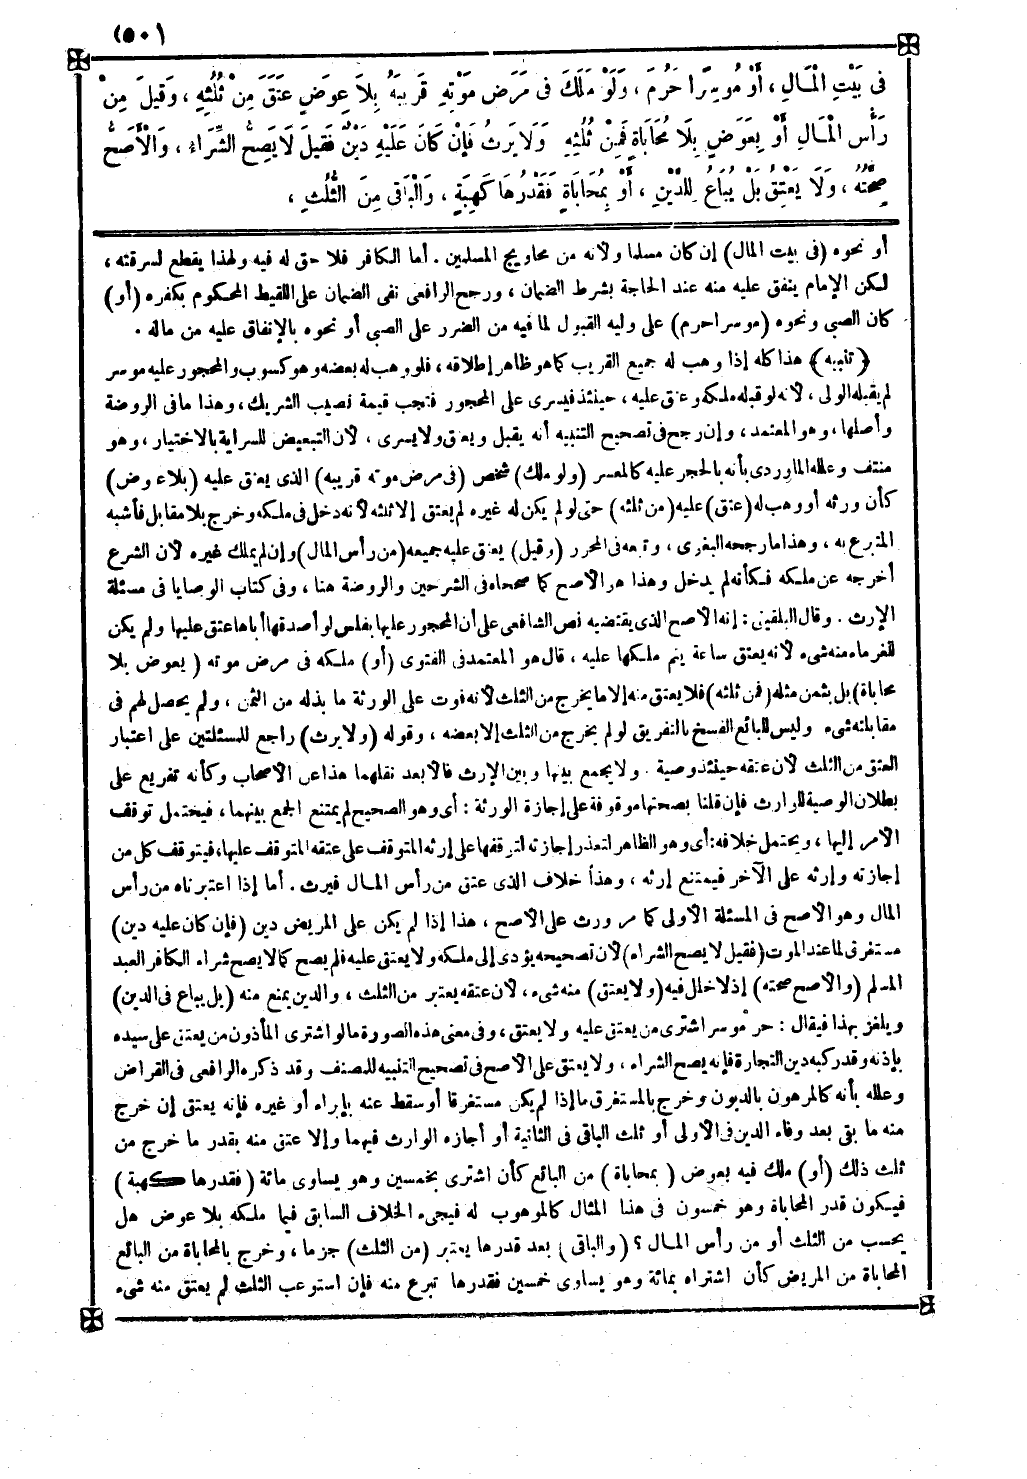 (٥٠١)
فِى بَيْتِ الْمَالِ ، أَوْ مُوسِرًا حَرُمَ ، وَلَوْ مَلَكَ فِى مَرَضِ مَوْتِهِ قَرِيبَهُ بِلاَ عِوَضٍ عَتَقَ مِنْ ثُلُثِهِ ، وَقِيلَ مِنْ
رَأْسِ الْمَالِ أَوْ بِعِوَضٍ بِلَا مُحَابَاةٍ فَمِنْ ثُلُثِهِ وَلَا يَرِثُ فَإِنْ كَانَ عَلَيْهِ دَيْنٌ فَقِيلَ لَا يَصِحُّ الشِّرَاءُ ، وَالْأَصَحُّ
صِحَّتُهُ ، وَلَا يَعْتِقُ بَلْ يُبَاعُ لِلدَّيْنِ ، أَوْ بِمُحَابَاةٍ فَقَدْرُهَا كَهِبَةٍ ، وَالْبَاقِى مِنَ الثُّلُثِ ،
أو نحوه (فى بيت المال) إن كان مسلما ولأنه من محاويج المسلمين . أما الكافر فلا حق له فيه ولهذا يقطع لسرقته ،
لكن الإمام ينفق عليه منه عند الحاجة بشرط الضمان ، ورجح الرافعى نفى الضمان على اللقيط المحكوم بكفره (أو)
كان الصبى ونحوه (موسرا حرم) على وليه القبول لما فيه من الضرر على الصبى أو نحوه بالإنفاق عليه من ماله .
﴿ تنبيه ﴾ هذا كله إذا وهب له جميع القريب كما هو ظاهر إطلاقه ، فلو وهب له بعضه وهو كسوب والمحجور عليه موسر
لم يقبله الولى ، لأنه لو قبله ملكه وعتق عليه ، حينئذ فيسرى على المحجور فتجب قيمة نصيب الشريك ، وهذا ما فى الروضة
وأصلها ، وهو المعتمد ، وإن رجح فى تصحيح التنبيه أنه يقبل ويعتق ولا يسرى ، لأن التبعيض للسراية بالاختيار ، وهو
منتف وعلله الماوردى بأنه بالحجر عليه كالمعسر (ولو ملك) شخص (فى مرض موته قريبه) الذى يعتق عليه (بلا عوض)
كأن ورثه أو وهب له (عتق) عليه (من ثلثه) حتى لو لم يكن له غيره لم يعتق إلا ثلثه لأنه دخل فى ملكه وخرج بلا مقابل فأشبه
المتبرع به ، وهذا ما رجحه البغوى ، وتبعه فى المحرر (وقيل) يعتق عليه جميعه (من رأس المال) وإن لم يملك غيره لأن الشرع
أخرجه عن ملكه فكأنه لم يدخل وهذا هو الأصح كما صححاه فى الشرحين والروضة هنا ، وفى كتاب الوصايا فى مسئلة
الإرث . وقال البلقينى : إنه الأصح الذى يقتضيه نص الشافعى على أن المحجور عليها بفلس لو أصدقها أباها عتق عليها ولم يكن
للغرماء منه شىء لأنه يعتق ساعة يتم ملكها عليه ، قال هو المعتمد فى الفتوى (أو) ملكه فى مرض موته ( بعوض بلا
محاباة) بل بثمن مثله (فمن ثلثه) فلا يعتق منه إلا ما يخرج من الثلث لأنه فوت على الورثة ما بذله من الثمن ، ولم يحصل لهم فى
مقابلته شىء وليس للبائع الفسخ بالتفريق لو لم يخرج من الثلث إلا بعضه ، وقوله (ولا يرث) راجع للمسئلتين على اعتبار
العتق من الثلث لأن عتقه حينئذ وصية . ولا يجمع بينها وبين الإرث قالا بعد نقلهما هذا عن الأصحاب وكأنه تفريع على
بطلان الوصية للوارث فإن قلنا بصحتها موقوفة على إجازة الورثة : أى وهو الصحيح لم يمتنع الجمع بينهما ، فيحتمل توقف
الأمر إليها ، ويحتمل خلافه : أى وهو الظاهر لتعذر إجازته لتوقفها على إرثه المتوقف على عتقه المتوقف عليها ، فيتوقف كل من
إجازته وإرثه على الآخر فيمتنع إرثه ، وهذا خلاف الذى عتق من رأس المال فيرث . أما إذا اعتبرناه من رأس
المال وهو الأصح فى المسئلة الأولى كما مر ورث على الأصح ، هذا إذا لم يكن على المريض دين (فإن كان عليه دين)
مستغرق لما عند الموت (فقيل لا يصح الشراء) لأن تصحيحه يؤدى إلى ملكه ولا يعتق عليه فلم يصح كما لا يصح شراء الكافر العبد
المسلم (والأصح صحته) إذ لا خلل فيه (ولا يعتق) منه شىء ، لأن عتقه يعتبر من الثلث ، والدين يمنع منه (بل يباع فى الدين)
ويلغز بهذا فيقال : حر موسر اشترى من يعتق عليه ولا يعتق ، وفى معنى هذه الصورة ما لو اشترى المأذون من يعتق على سيده
بإذنه وقد ركبه دين التجارة فإنه يصح الشراء ، ولا يعتق على الأصح فى تصحيح التنبيه للمصنف وقد ذكره الرافعى فى القراض
وعلله بأنه كالمرهون بالديون وخرج بالمستغرق ما إذا لم يكن مستغرقا أو سقط عنه بإبراء أو غيره فإنه يعتق إن خرج
منه ما بقى بعد وفاء الدين فى الأولى أو ثلث الباقى فى الثانية أو أجازه الوارث فيهما وإلا عتق منه بقدر ما خرج من
ثلث ذلك (أو) ملك فيه بعوض ( بمحاباة ) من البائع كأن اشترى بخمسين وهو يساوى مائة (فقدرها كهبة )
فيكون قدر المحاباة وهو خمسون فى هذا المثال كالموهوب له فيجىء الخلاف السابق فيما ملكه بلا عوض هل
يحسب من الثلث أو من رأس المال ؟ (والباقى) بعد قدرها يعتبر (من الثلث) جزما ، وخرج بالمحاباة من البائع
المحاباة من المريض كأن اشتراه بمائة وهو يساوى خمسين فقدرها تبرع منه فإن استوعب الثلث لم يعتق منه شىء